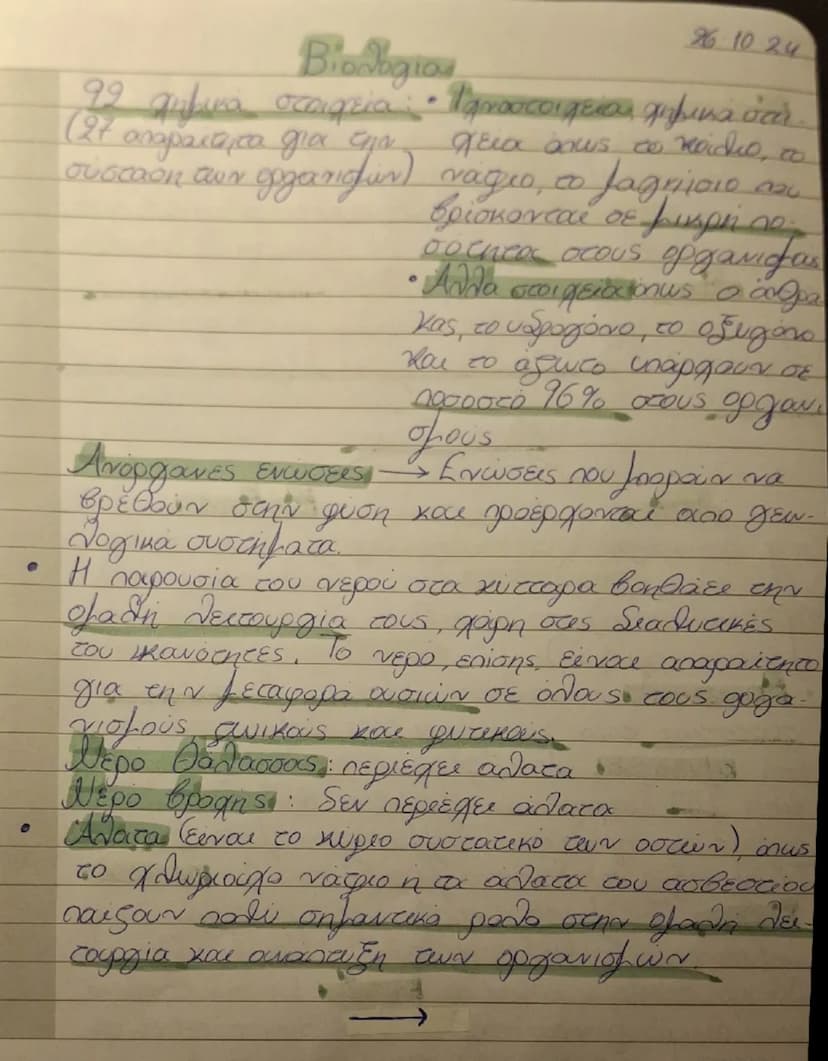 26.10.24
Βιολογία
92 χημικά στοιχεία:
(27 απαραίτητα για την
σύσταση των οργανισμών)
• Ιχνοστοιχεία, χημικά στοι-
χεια όπως το κάλιο, το
νάτριο, το μαγνήσιο που
βρίσκονται σε μικρή πο-
σότητα στους οργανισμους
• Άλλα στοιχεία όπως ο άνθρα
κας, το υδρογόνο, το οξυγόνο
και το άζωτο υπάρχουν σε
ποσοστό 96% στους οργανι
σμους
Ανόργανες ενώσεις → Ενώσεις που μπορούν να
βρεθούν στην φύση και προέρχονται απο γεω-
λογικα συστήματα.
• Η παρουσία του νερού στα κύτταρα βοηθάει την
ομαλή λειτουργία τους, χάρη στις διαλυτικές
του ικανότητες. Το νερό, επίσης, είναι απαραίτητο
για την μεταφορα ουσιών σε όλους τους οργα-
νισμούς, ζωικούς και φυτικους.
Νερό θάλασσας: περιέχει αλατα
Νερό βροχής: δεν περιέχει άλατα
• Άλατα (είναι το κύριο συστατικό των οστών), όπως
το χλωριούχο νάτριο ή τα αλατα του ασβεστίου
παίζουν πολύ σημαντικό ρολο στην ομαλή λει-
τουργία και ανάπτυξη των οργανισμων.
→